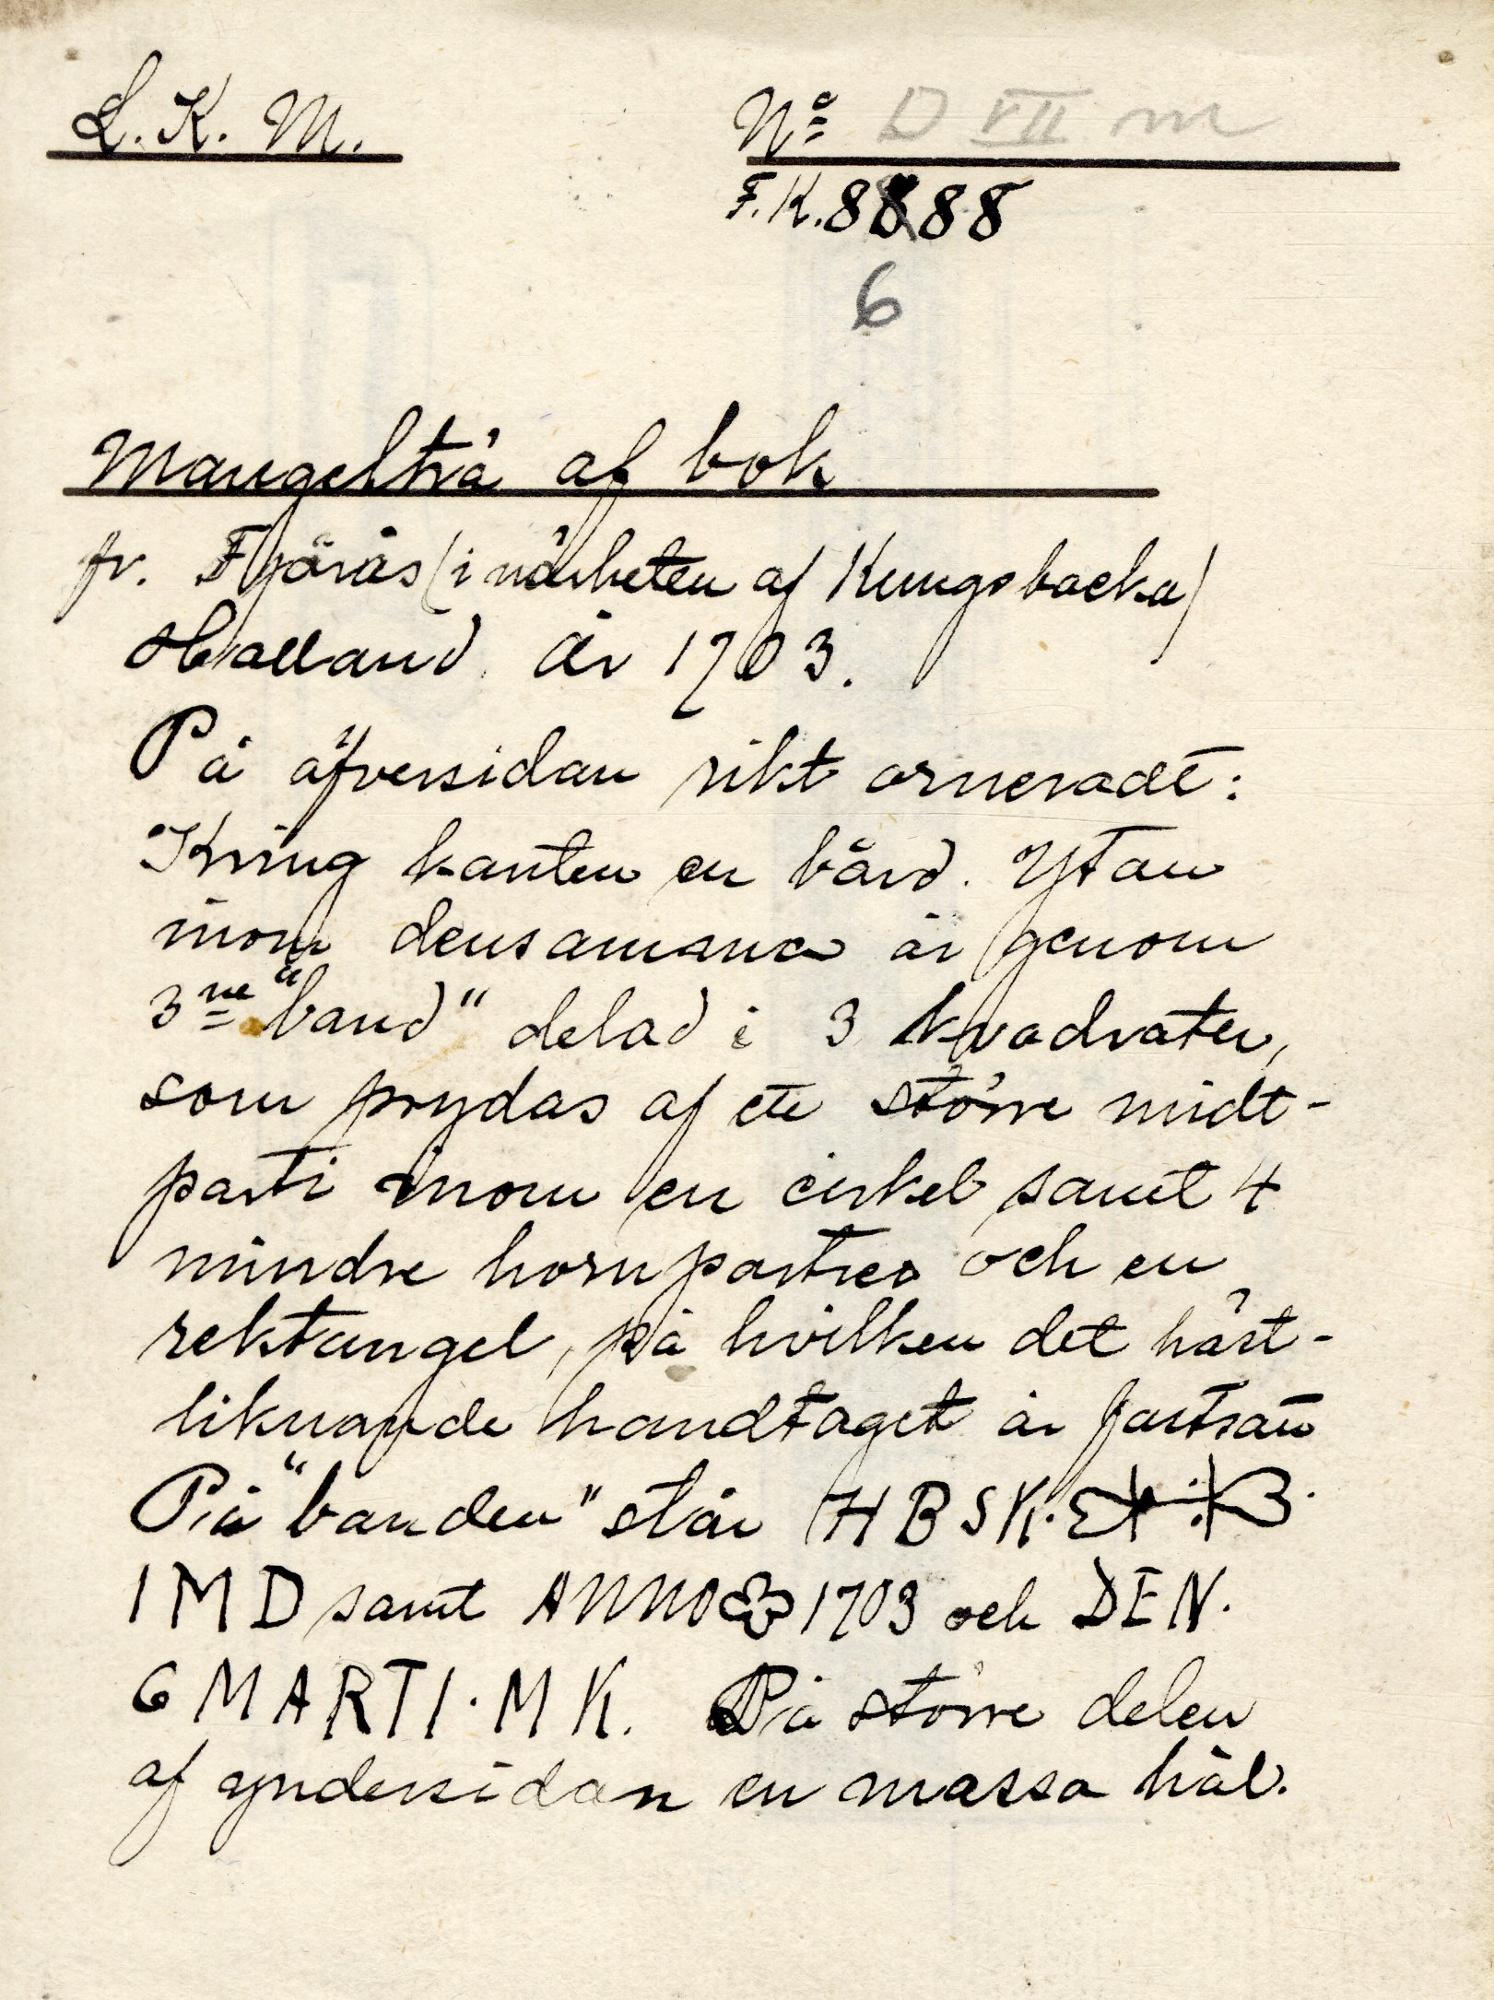 L. K. M.
No D VII m
F.K. 8888
6
Mangelträ af bok
fr. Fjärås (i närheten af Kungsbacka)
Halland. År 1703.
På öfversidan rikt orneradt:
Kring kanten en bård. Ytan
inom densamma är genom
3ne "band" delad i 3 kvadrater,
som prydas af ett större midt-
parti inom en cirkel samt 4
mindre hörnpartier och en
rektangel, på hvilken det häst-
liknande handtaget är fastsatt
På "banden" står HBSK.
IMD samt ANNO 1703 och DEN.
6 MARTI. M K. På större delen
af yndersidan en massa hål.